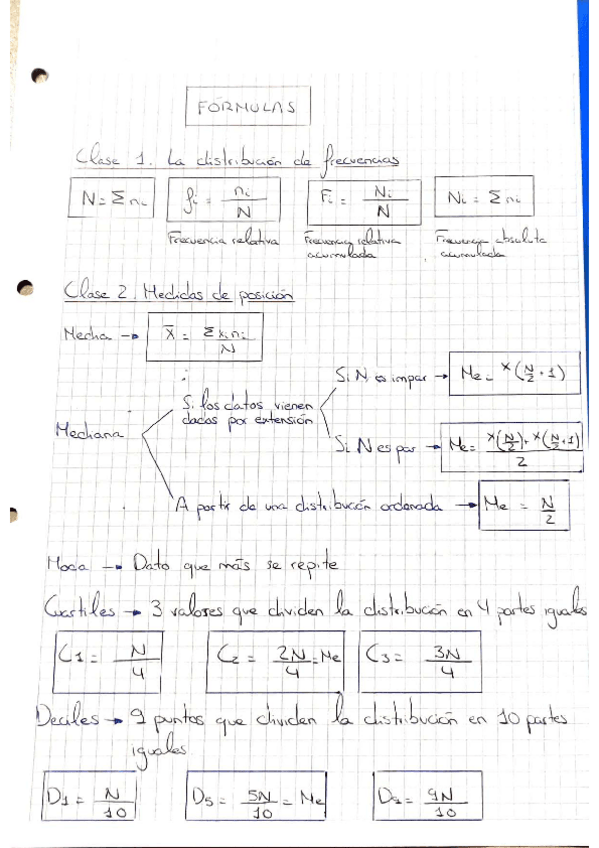 FÓRMULAS
Clase 1. La distribución de frecuencias
N = Σ ni   fi = ni / N   Fi = Ni / N   Ni = Σ ni
Frecuencia relativa   Frecuencia relativa acumulada   Frecuencia absoluta acumulada
Clase 2. Medidas de posición
Media → x̄ = Σ xi ni / N
Mediana
Si los datos vienen dados por extensión
Si N es impar → Me = x(N/2 + 1)
Si N es par → Me = x(N/2) + x(N/2 + 1) / 2
A partir de una distribución ordenada → Me = N/2
Moda → Dato que más se repite
Cuartiles → 3 valores que dividen la distribución en 4 partes iguales
C1 = N/4   C2 = 2N/4 = Me   C3 = 3N/4
Deciles → 9 puntos que dividen la distribución en 10 partes
iguales
D1 = N/10   D5 = 5N/10 = Me   D9 = 9N/10